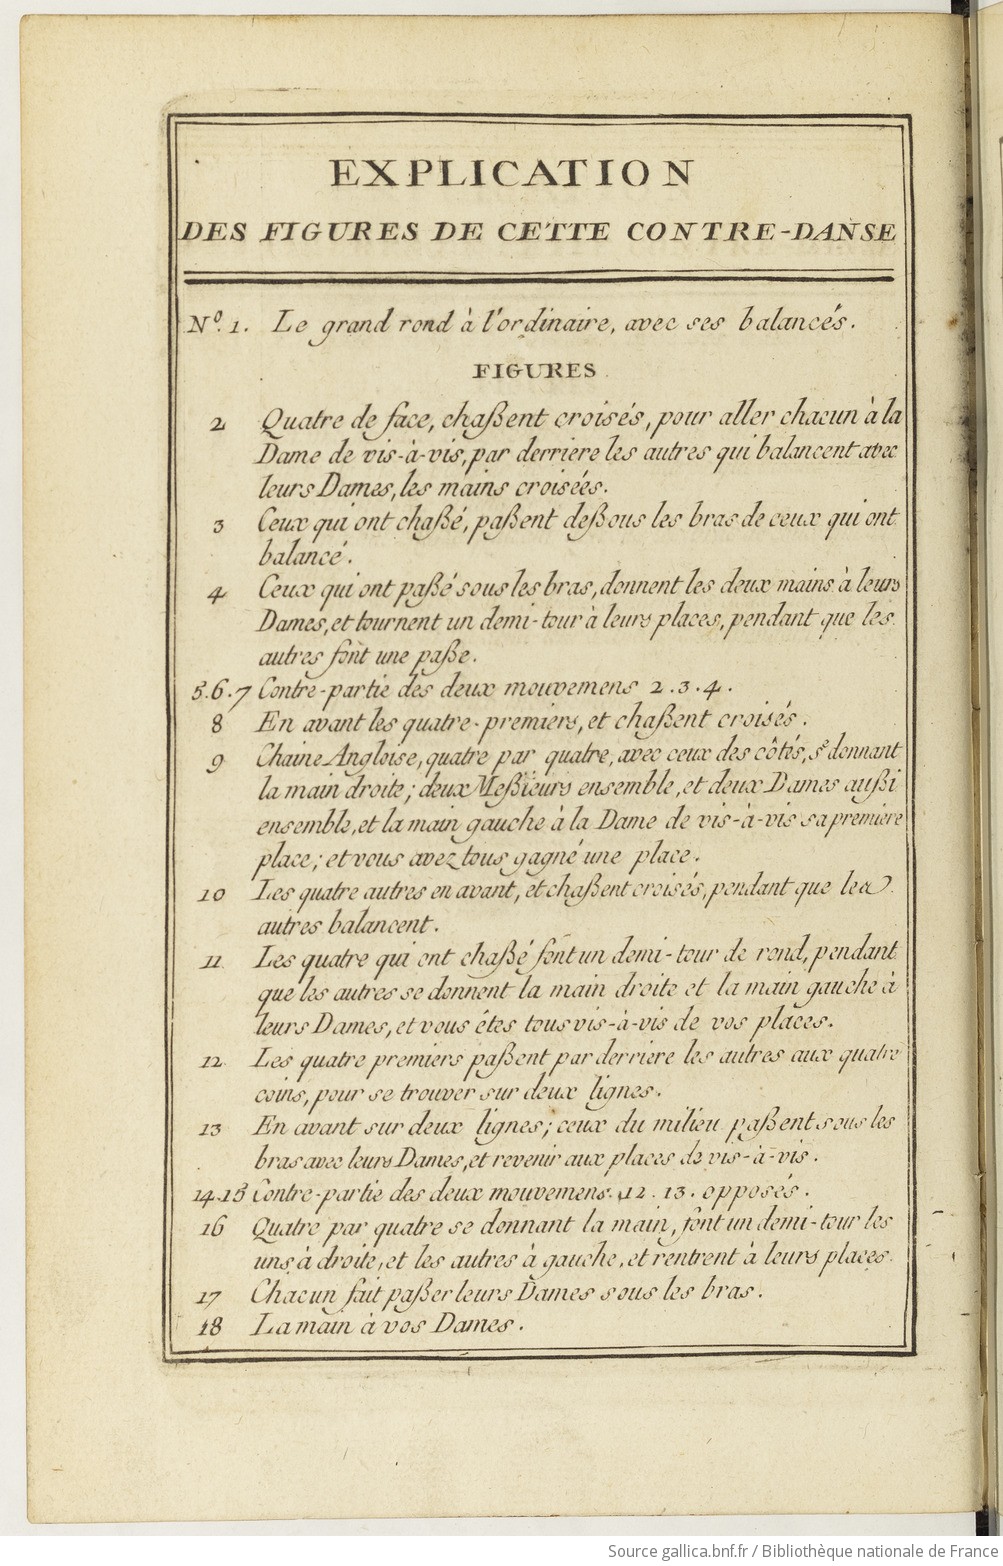 EXPLICATION
DES FIGURES DE CETTE CONTRE-DANSE
Nº. 1. Le grand rond à l'ordinaire, avec ses balancés.
FIGURES
2 Quatre de face, chaßent croisés, pour aller chacun à la
Dame de vis-à-vis, par derriere les autres qui balancent avec
leurs Dames, les mains croisées.
3 Ceux qui ont chaßé, paßent deßous les bras de ceux qui ont
balancé.
4 Ceux qui ont paßé sous les bras, donnent les deux mains à leurs
Dames, et tournent un demi-tour à leurs places, pendant que les
autres font une paße.
5.6.7 Contre-partie des deux mouvemens 2.3.4.
8 En avant les quatre-premiers, et chaßent croisés.
9 Chaine Angloise, quatre par quatre, avec ceux des côtés, se donnant
la main droite; deux Meßieurs ensemble, et deux Dames außi
ensemble, et la main gauche à la Dame de vis-à-vis sa premiere
place; et vous avez tous gagné une place.
10 Les quatre autres en avant, et chaßent croisés, pendant que les
autres balancent.
11 Les quatre qui ont chaßé font un demi-tour de rond, pendant
que les autres se donnent la main droite et la main gauche à
leurs Dames, et vous étes tous vis-à-vis de vos places.
12 Les quatre premiers paßent par derriere les autres aux quatre
coins, pour se trouver sur deux lignes.
13 En avant sur deux lignes; ceux du milieu paßent sous les
bras avec leurs Dames, et revenir aux places de vis-à-vis.
14.15 Contre-partie des deux mouvemens. 12. 13. opposés.
16 Quatre par quatre se donnant la main, font un demi-tour les
uns à droite, et les autres à gauche, et rentrent à leurs places.
17 Chacun fait paßer leurs Dames sous les bras.
18 La main à vos Dames.
Source gallica.bnf.fr / Bibliothèque nationale de France